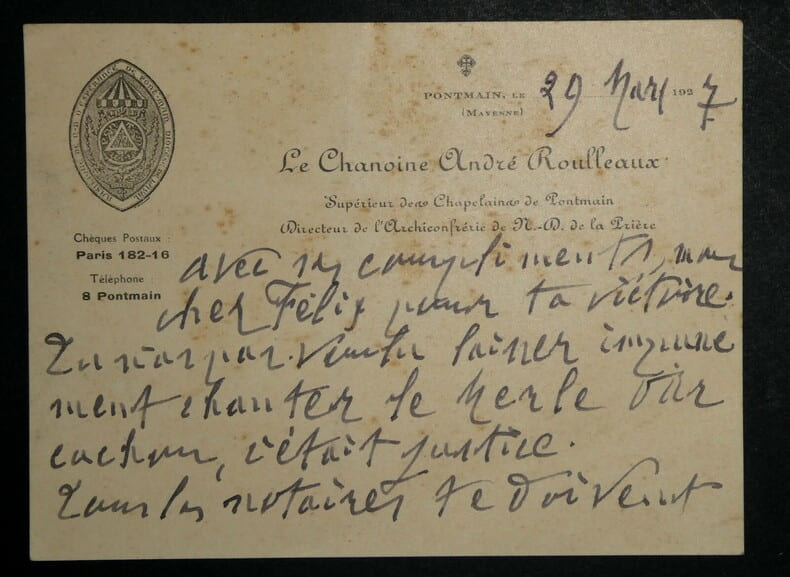 PONTMAIN, LE 29 Mars 1927
(MAYENNE)
Le Chanoine André Roulleaux
Supérieur des Chapelains de Pontmain
Directeur de l'Archiconfrérie de N.-D. de la Prière
Chèques Postaux :
Paris 182-16
Téléphone :
8 Pontmain
avec ses compliments, mon
cher Félix pour ta victoire.
Tu n'as pas voulu laisser impuné
ment chanter le merle
cochon, c'était justice.
Tous les notaires te doivent